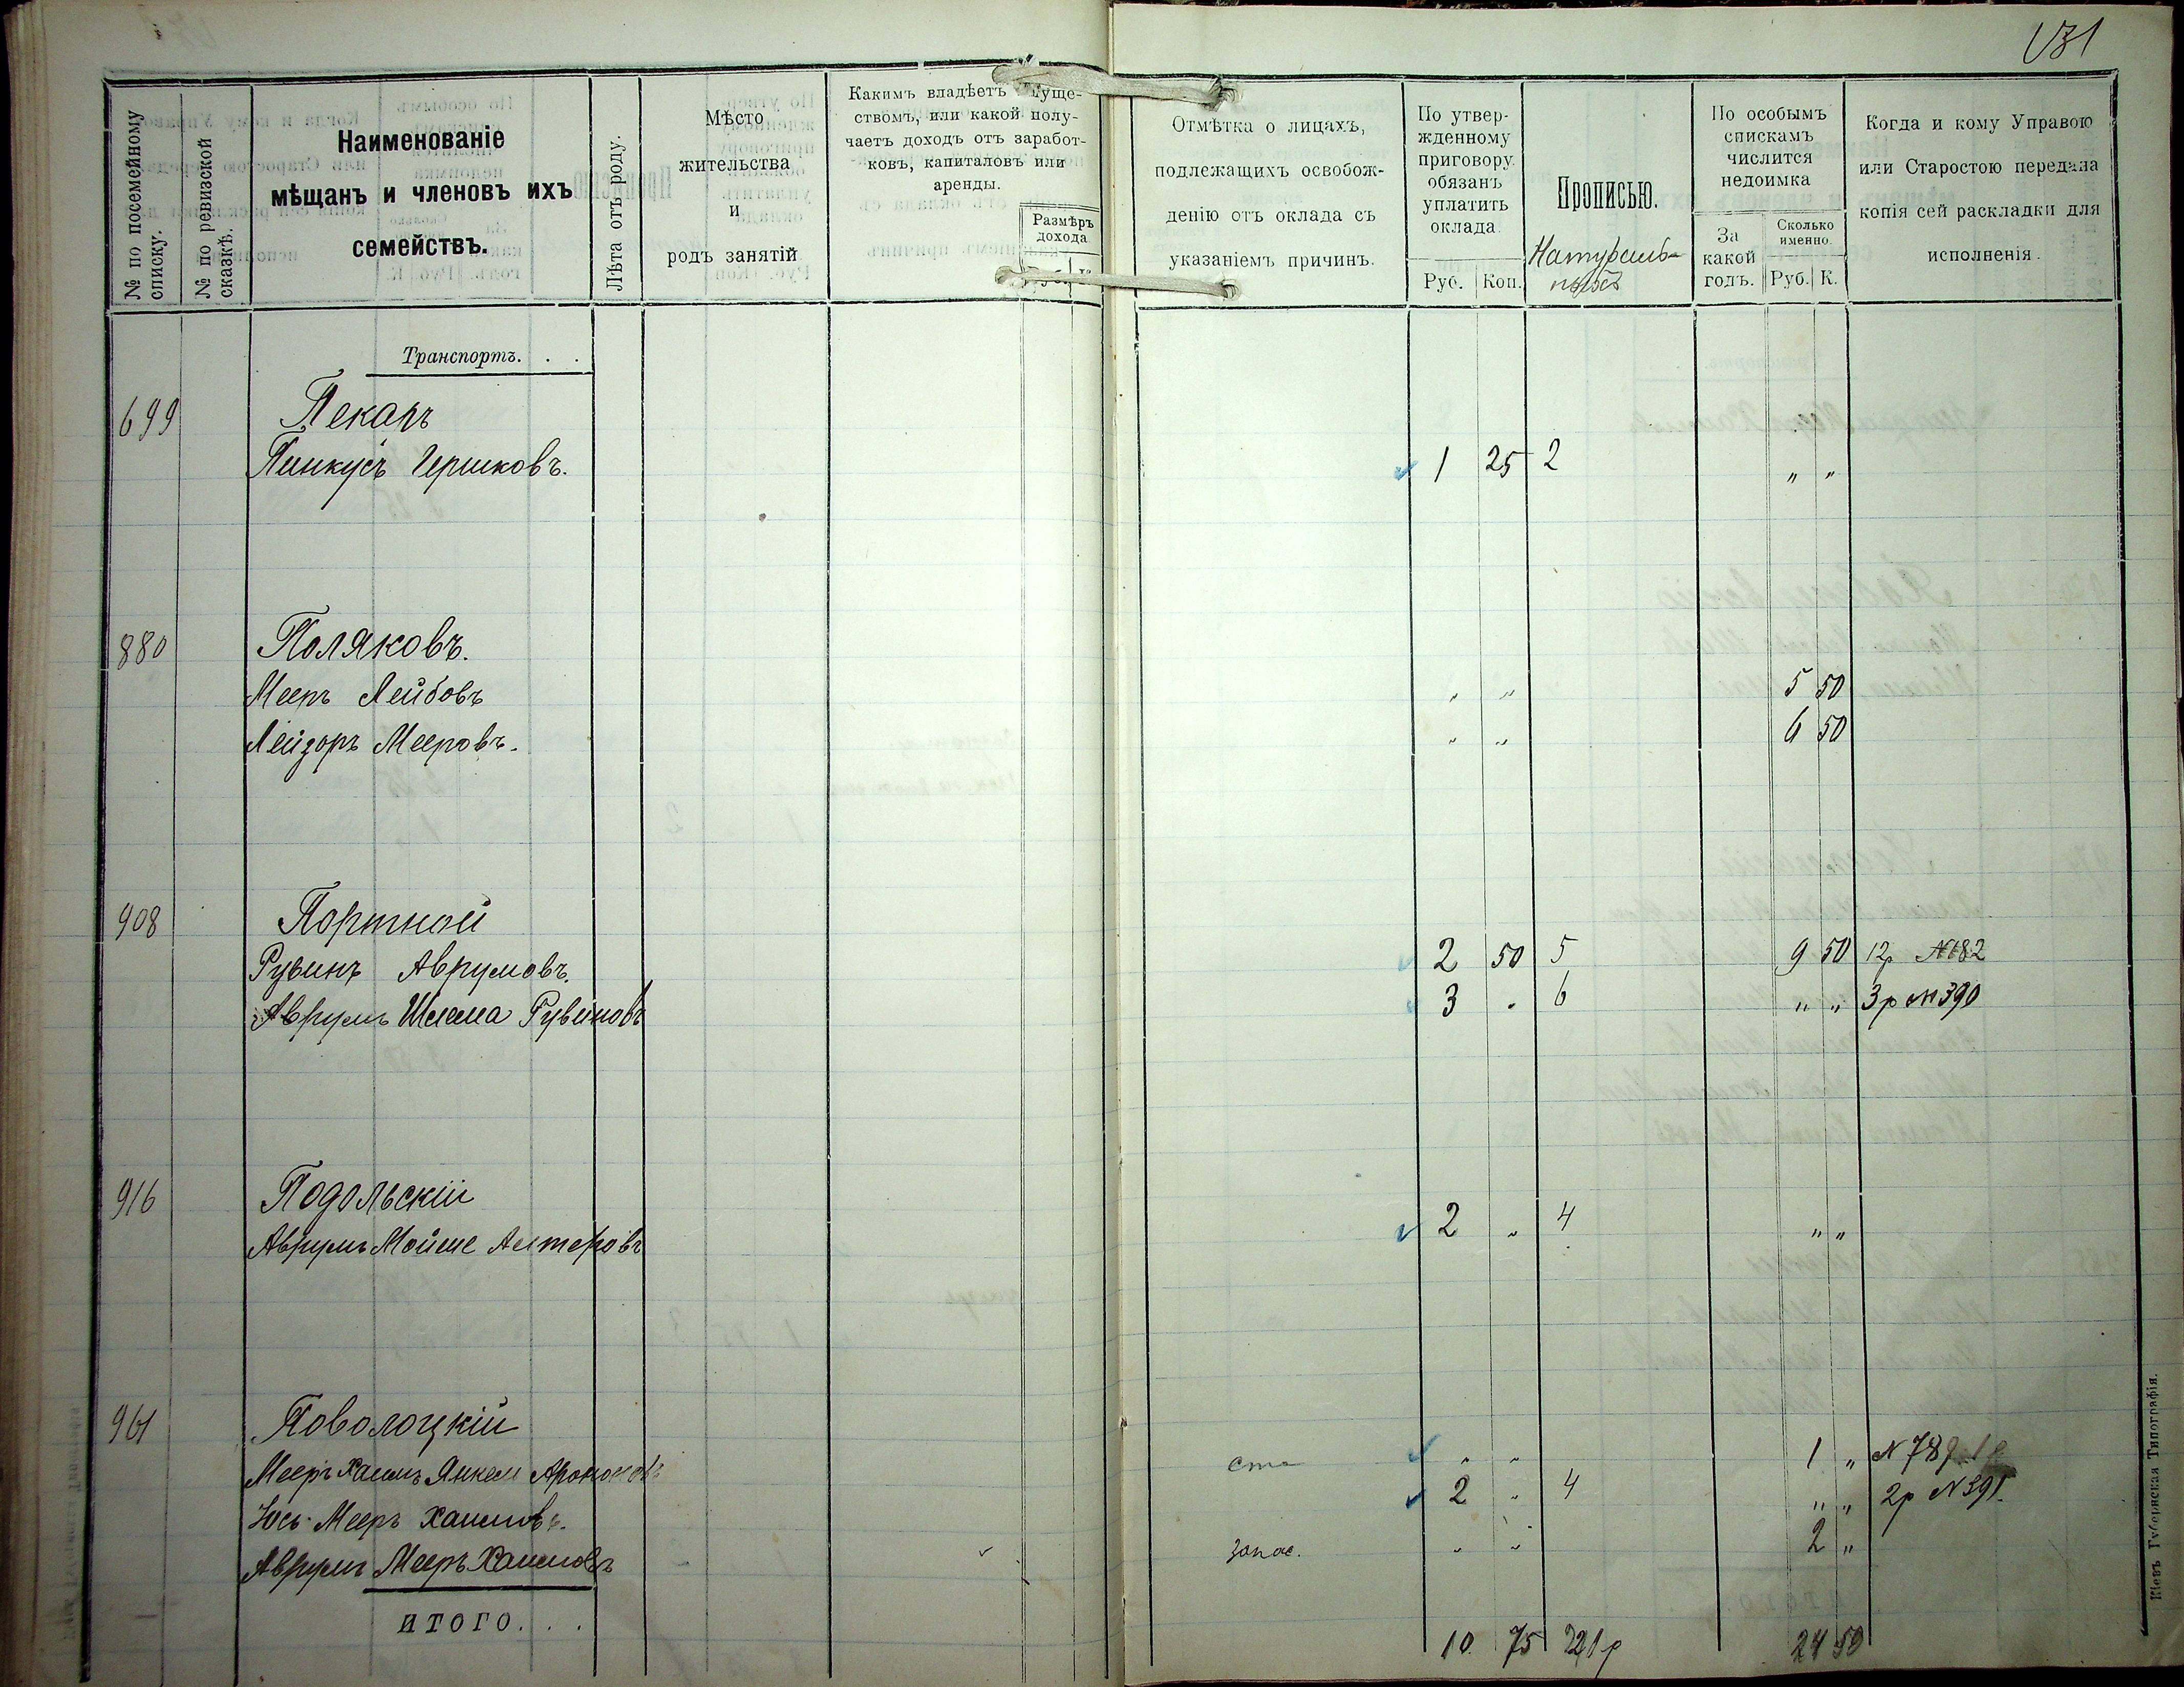 131
№ по посемейному списку.
№ по ревизской сказкѣ.
Наименованіе
мѣщанъ и членовъ ихъ
семействъ.
Лѣта отъ роду.
Мѣсто
жительства
и
родъ занятій
Какимъ владѣетъ имуще-
ствомъ, или какой полу-
чаетъ доходъ отъ заработ-
ковъ, капиталовъ или
аренды.
Размѣръ
дохода
Руб. К.
Отмѣтка о лицахъ,
подлежащихъ освобож-
денію отъ оклада съ
указаніемъ причинъ.
По утвер-
жденному
приговору
обязанъ
уплатить
оклада.
Руб. Коп.
Прописью.
По особымъ
спискамъ
числится
недоимка
За
какой
годъ.
Сколько
именно.
Руб. К.
Когда и кому Управою
или Старостою передана
копія сей раскладки для
исполненія.
Транспортъ. . .
699 Пекаръ
Пинкусъ Гершковъ. 1 25 2 „ „
880 Поляковъ.
Мееръ Лейбовъ „ „ 5 50
Лейзоръ Мееровъ. „ „ 6 50
908 Портной
Рувинъ Аврумовъ. 2 50 5 9 50 12р №182
Аврумъ Шлема Рувиновъ 3 „ 6 „ „ 3р №390
916 Подольскій
Аврумъ Мойше Алтеровъ 2 „ 4 „ „
961 Поволоцкій
Мееръ Хаимъ Янкель Ароновъ „ „ 1 „ №789 1р
Юсь-Мееръ Хаимовъ. 2 „ 4 „ „ 2р №391.
Аврумъ Мееръ Хаимовъ запас. „ „ 2 „
ИТОГО. . . 10 75 21р 24 50
Кіевъ Губернская Типографія.